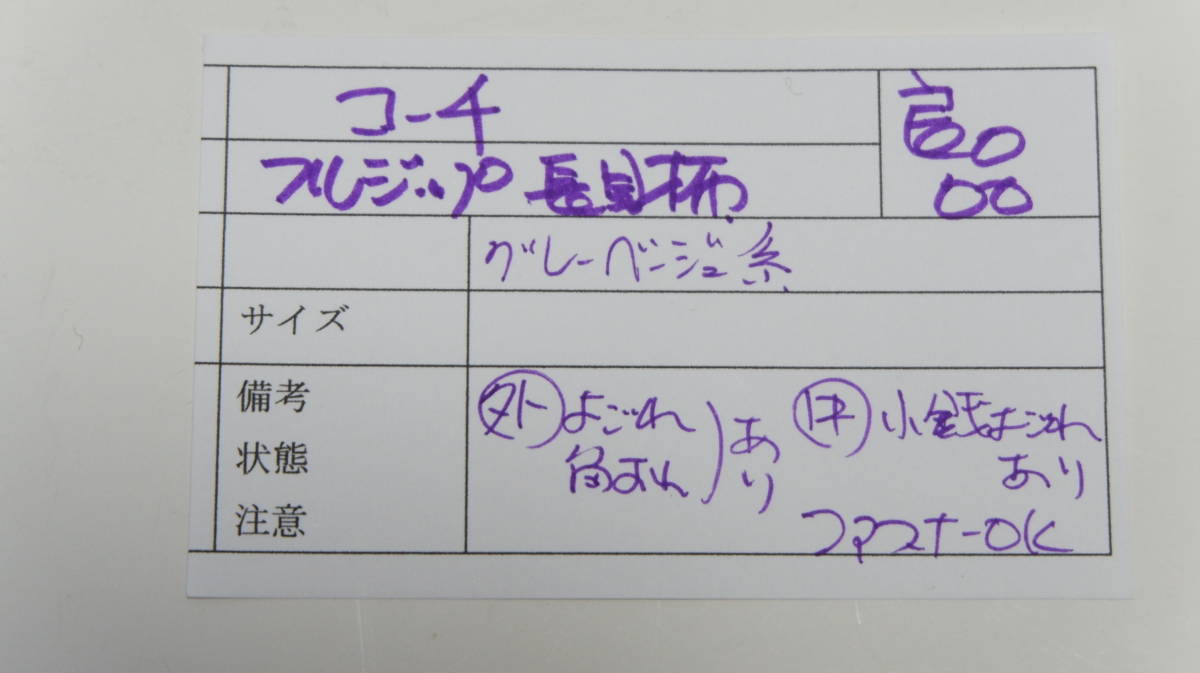 コーチ
フルジップ 長財布
グレーベージュ系
サイズ
備考
状態
注意
外 よごれ
角すれ
あり
内 小銭よごれ
あり
ファスナーOK